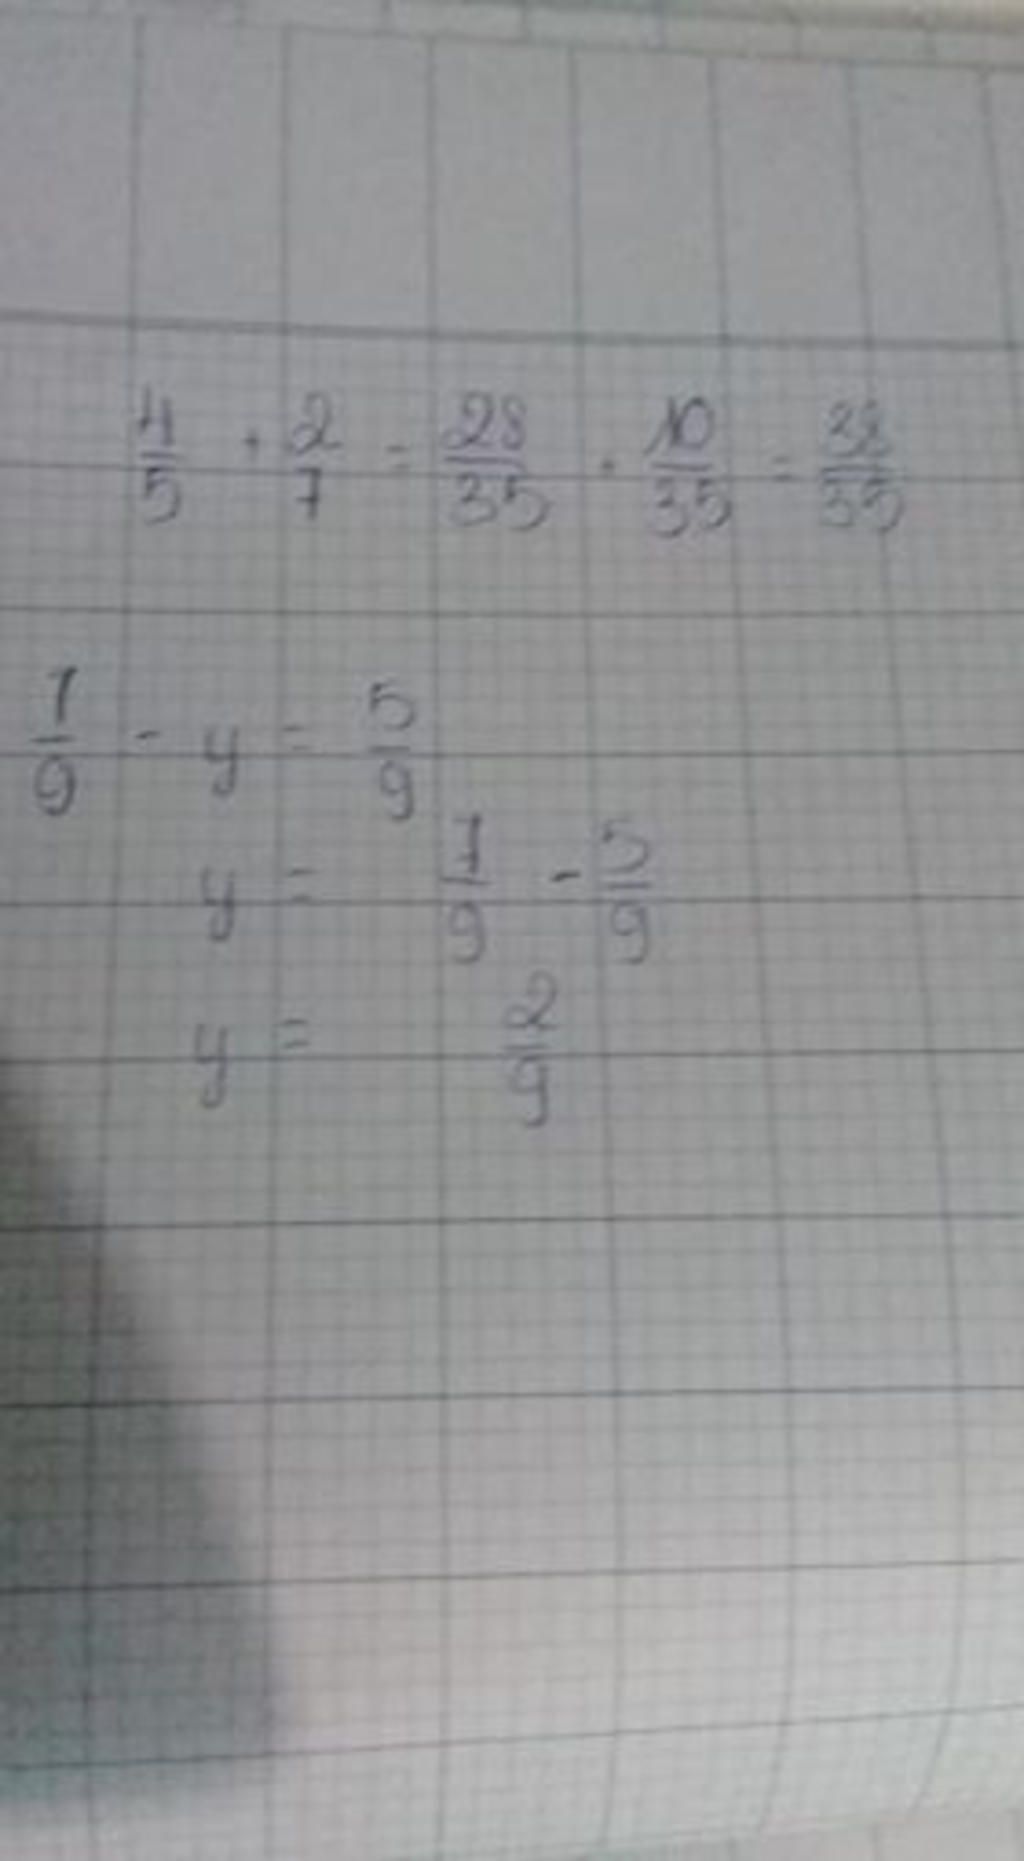 4/5 + 2/7 = 28/35 + 10/35 = 38/35
7/9 - y = 5/9
y = 7/9 - 5/9
y = 2/9